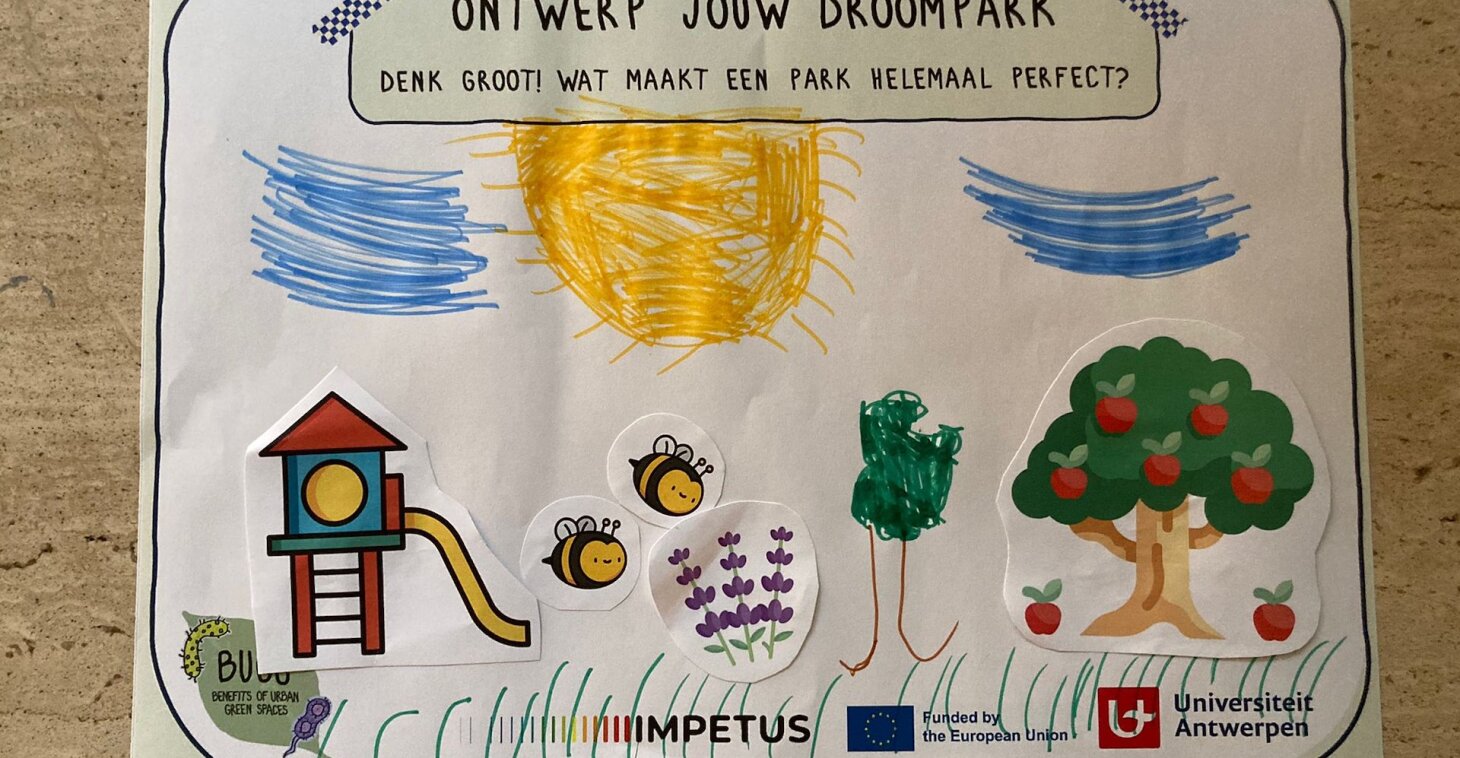 ONTWERP JOUW DROOMPARK
DENK GROOT! WAT MAAKT EEN PARK HELEMAAL PERFECT?
BENEFITS OF URBAN
GREEN SPACES
IMPETUS
Funded by
the European Union
Universiteit
Antwerpen